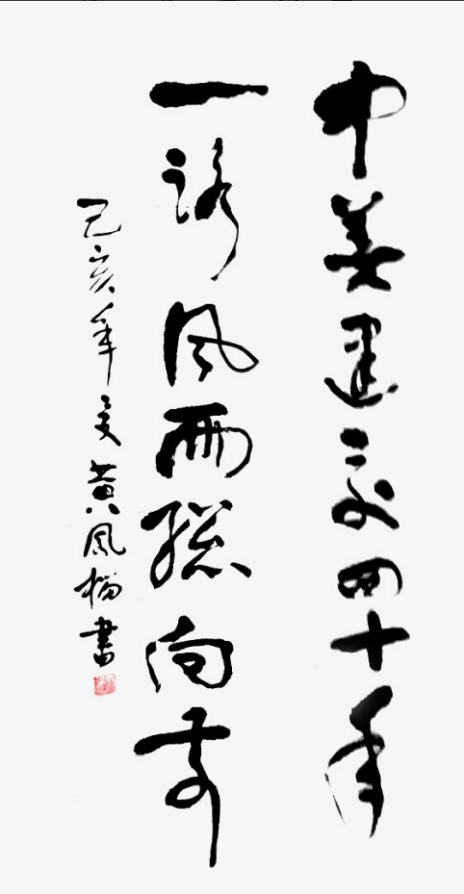 中美建交四十年
一路风雨總向前
己亥年夏黄書